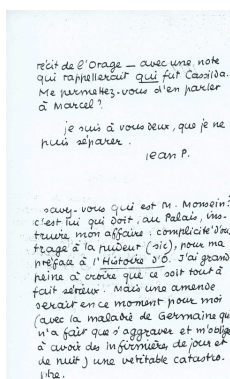 récit de l'Orage — avec une note
qui rappellerait qui fut Cassilda.
Me permettez-vous d'en parler
à Marcel?
je suis à vous deux, que je ne
puis séparer.
Jean P.
savez-vous qui est M. Monsein?
c'est lui qui doit, au Palais, ins-
truire mon affaire: complicité d'ou-
trage à la pudeur (sic), pour ma
préface à l'Histoire d'O. J'ai grand
peine à croire que ce soit tout à
fait sérieux. Mais une amende
serait en ce moment pour moi
(avec la maladie de Germaine qui
n'a fait que s'aggraver et m'oblige
à avoir des infirmières, de jour et
de nuit) une véritable catastro-
phe.